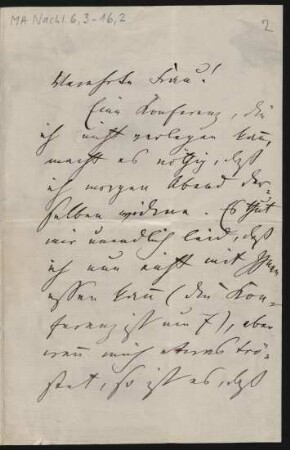 MA Nachl. 6, 3-16, 2
2
Verehrte Frau!
Eine Konferenz, die
ich nicht verlegen kann,
macht es nöthig, daß
ich morgen Abend der-
selben widme. Es thut
mir unendlich leid, daß
ich nun nicht mit Ihnen
essen kann (die Kon-
ferenz ist um 7), aber
wenn mich etwas trö-
stet, so ist es, daß